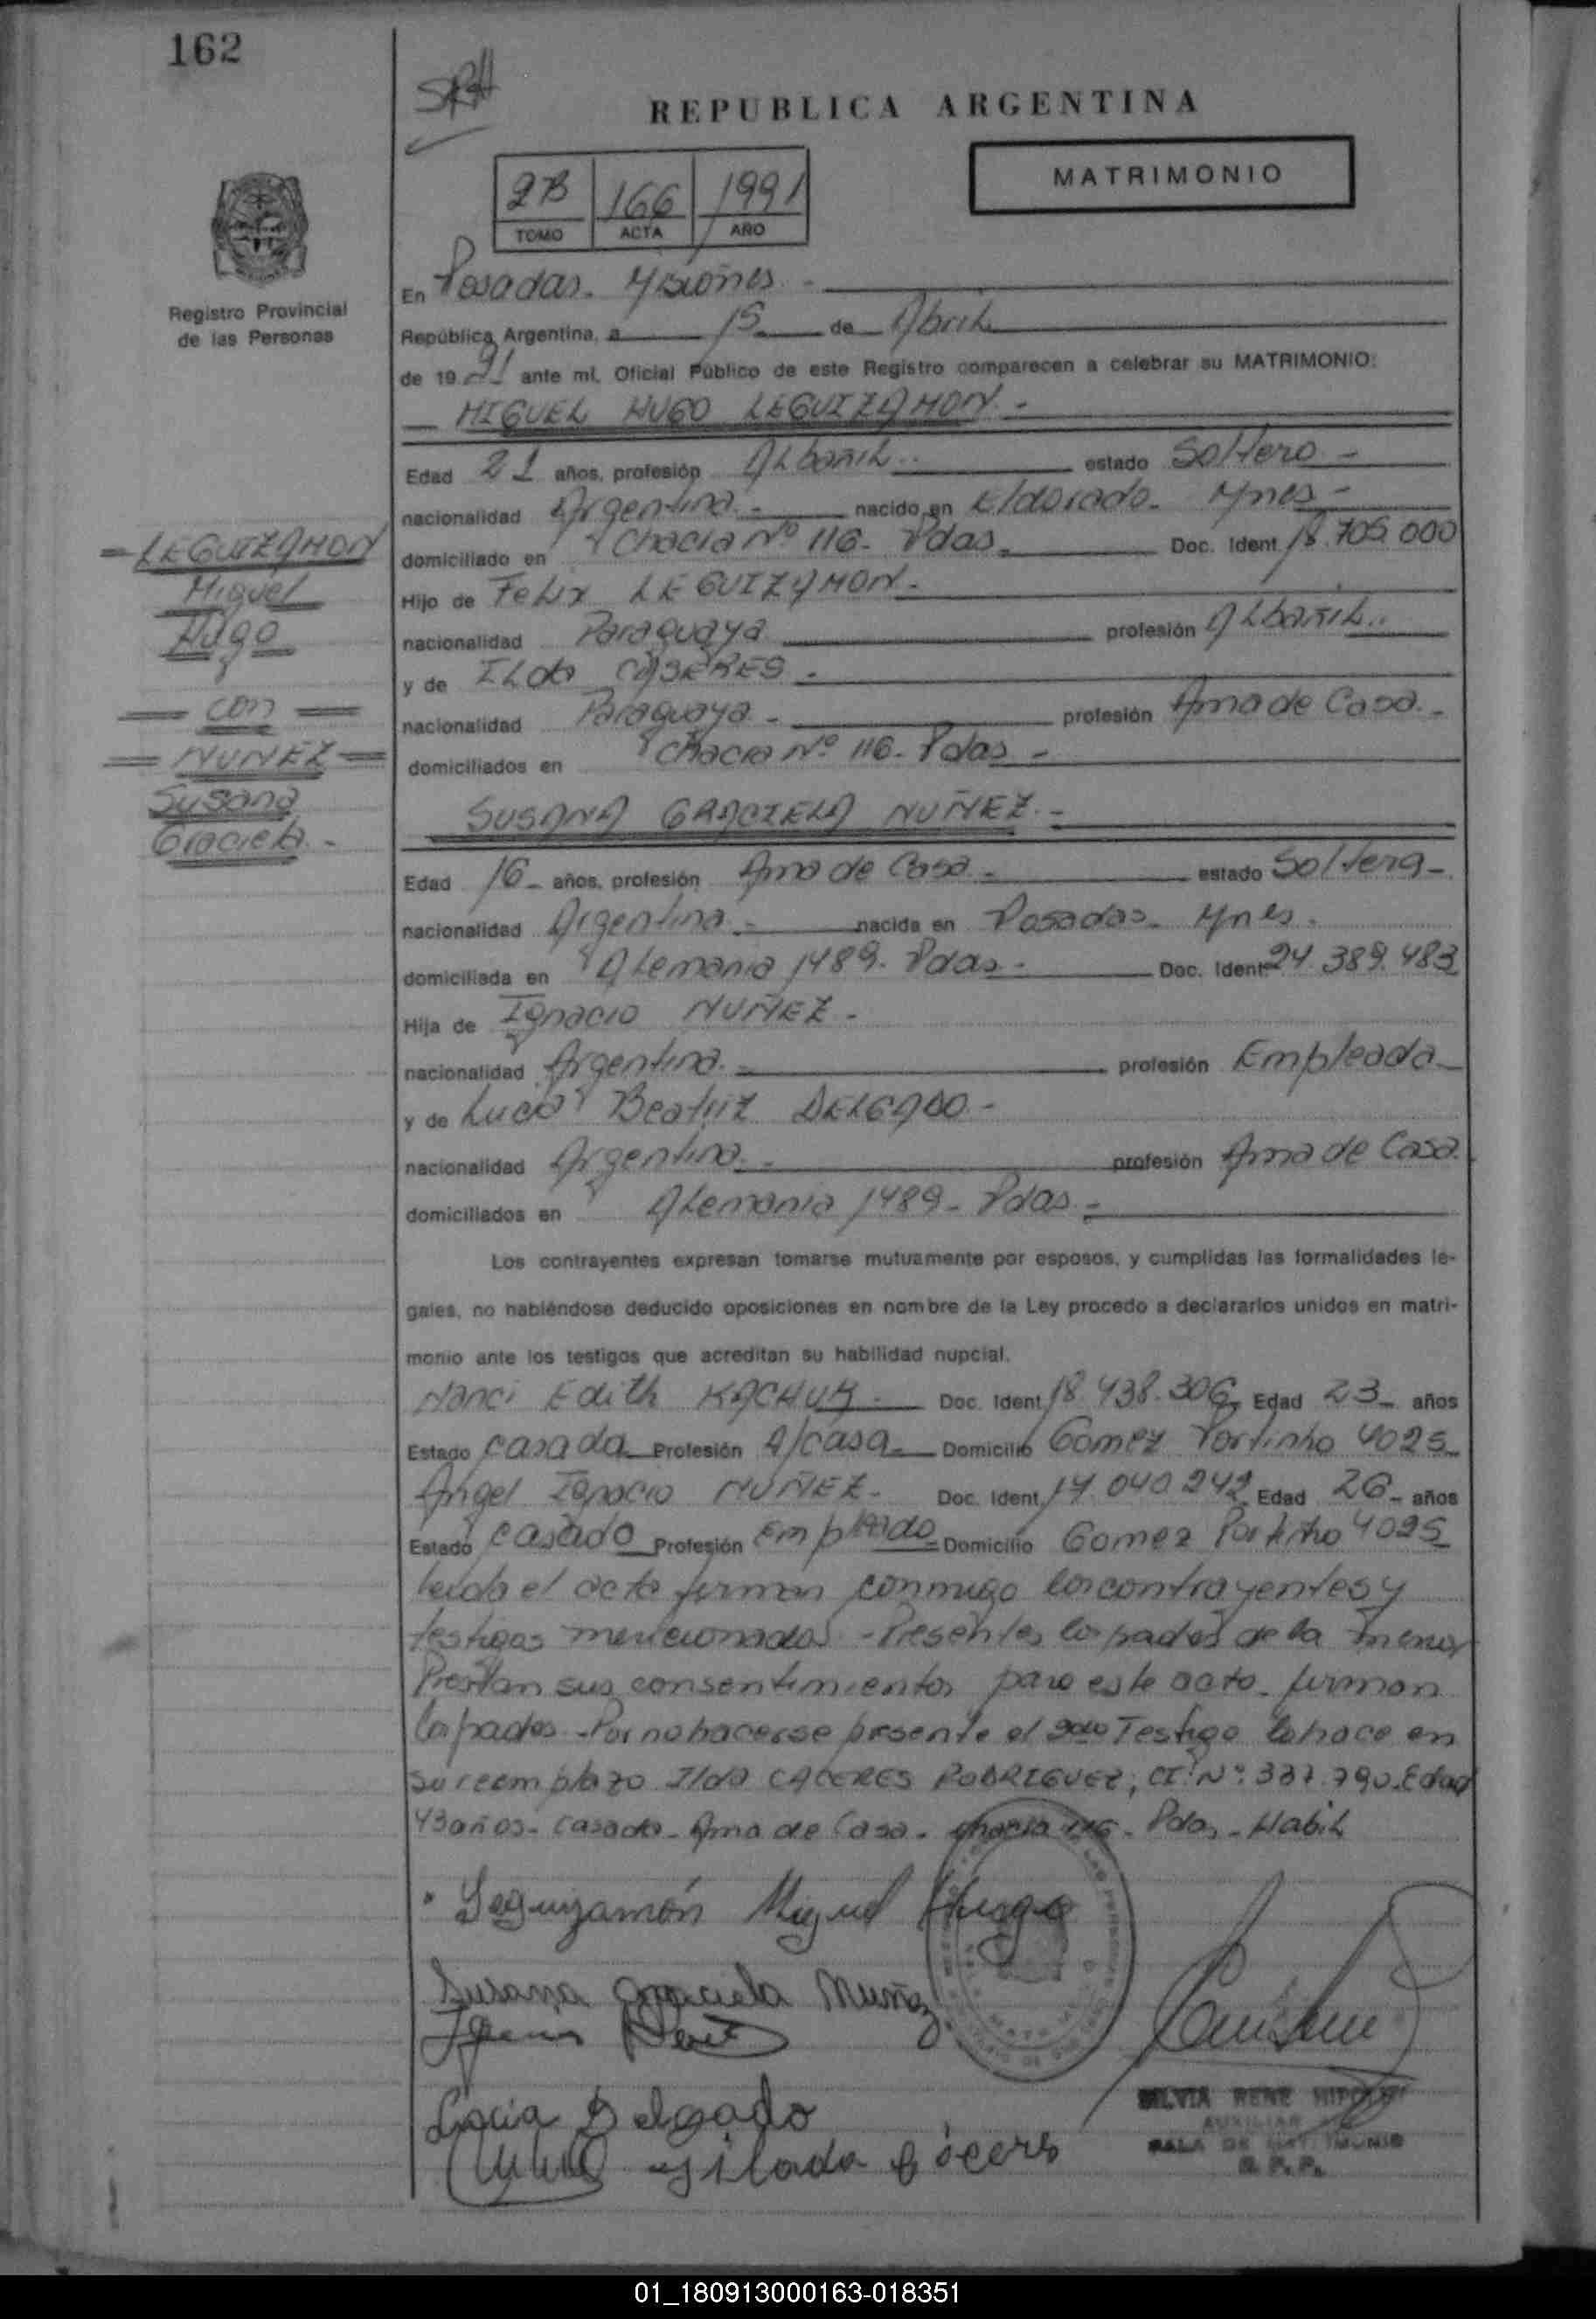 162
REPUBLICA ARGENTINA
MATRIMONIO
2B 166 1991
TOMO ACTA AÑO
Registro Provincial
de las Personas
En Posadas. Misiones -
República Argentina, a 15 de Abril
de 1991 ante mí, Oficial Público de este Registro comparecen a celebrar su MATRIMONIO:
MIGUEL HUGO LEGUIZAMON -
Edad 21 años, profesión Albañil.. estado Soltero -
nacionalidad Argentina - nacido en Eldorado - Mnes -
domiciliado en Chacra Nº 116 - Pdas - Doc. Ident. 18.705.000
Hijo de Felix LEGUIZAMON -
nacionalidad Paraguaya profesión Albañil..
y de Ilda CASERES -
nacionalidad Paraguaya - profesión Ama de Casa -
domiciliados en Chacra Nº 116 - Pdas -
SUSANA GRACIELA NUÑEZ -
Edad 16 - años, profesión Ama de Casa - estado Soltera -
nacionalidad Argentina - nacida en Posadas - Mnes.
domiciliada en Alemania 1489 - Pdas - Doc. Ident. 24.389.483
Hija de Ignacio NUÑEZ -
nacionalidad Argentina - profesión Empleado -
y de Lucia Beatriz DELGADO -
nacionalidad Argentina - profesión Ama de Casa
domiciliados en Alemania 1489 - Pdas -
Los contrayentes expresan tomarse mutuamente por esposos, y cumplidas las formalidades le-
gales, no habiéndose deducido oposiciones en nombre de la Ley procedo a declararlos unidos en matri-
monio ante los testigos que acreditan su habilidad nupcial.
Nanci Edith KACHUK - Doc. Ident. 18.438.306 Edad 23 - años
Estado casada Profesión A/casa - Domicilio Gomez Portinho 4025
Angel Ignacio NUÑEZ - Doc. Ident. 17.040.242 Edad 26 - años
Estado casado Profesión Empleado Domicilio Gomez Portinho 4025
leida el acta firman conmigo los contrayentes y
testigos mencionados - Presentes los padres de la menor
Prestan sus consentimientos para este acto - firman
los padres - Por no hacerse presente el 2do Testigo lo hace en
su reemplazo Ilda CACERES RODRIGUEZ, CI. Nº: 337.790. Edad
43 años - casada - Ama de Casa - chacra 116 - Pdas - Habil
LEGUIZAMON
Miguel
Hugo
con
NUÑEZ
Susana
Graciela -
Leguizamón Miguel Hugo
Susana Graciela Nuñez
Lucia Delgado
SILVIA RENE
AUXILIAR
SALA DE MATRIMONIO
R. P. P.
01_180913000163-018351